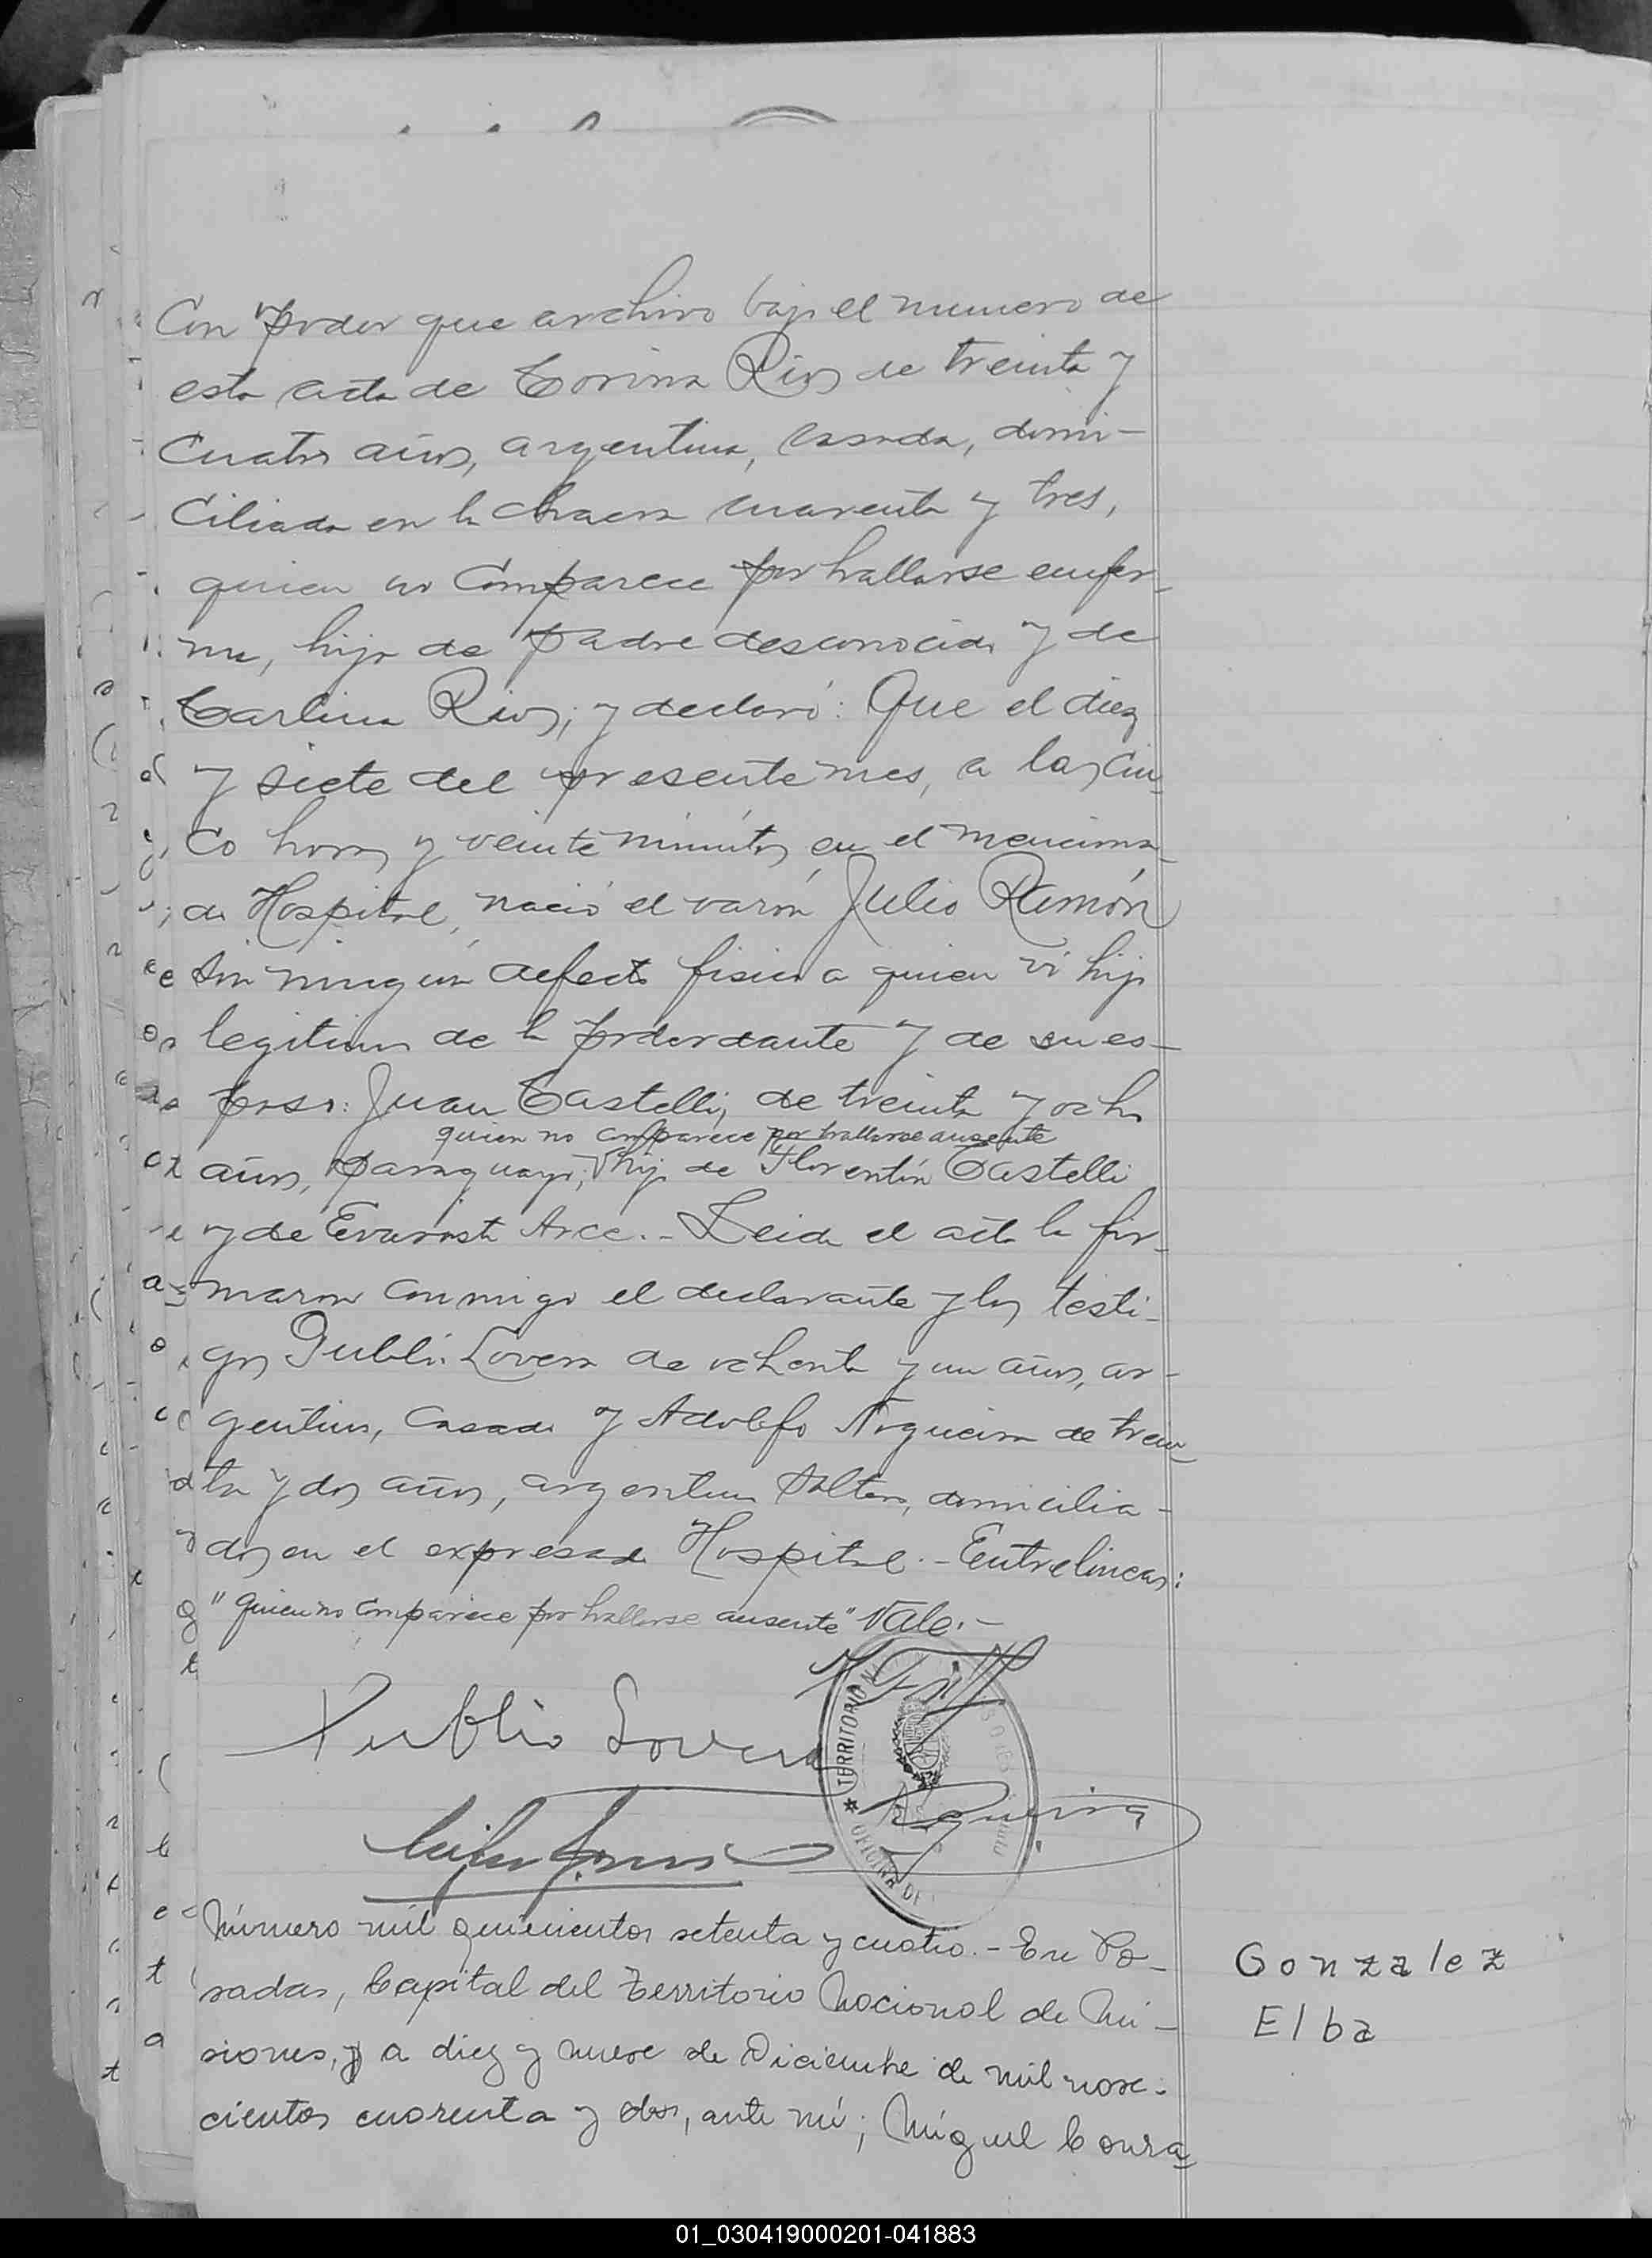 Con poder que archivo bajo el numero de
esta acta de Corina Rios de treinta y
cuatro años, argentina, casada, domi-
ciliada en la chacra cuarenta y tres,
quien no comparece por hallarse enfer-
ma, hija de padre desconocido y de
Carlina Rios; y declaró: Que el diez
y siete del presente mes, a las cin-
co horas y veinte minutos, en el menciona-
do Hospital, nació el varón Julio Ramón
sin ningún defecto fisico a quien vi hijo
legitimo de la poderdante y de su es-
poso: Juan Castelli, de treinta y ocho
quien no comparece por hallarse ausente
años, paraguayo; hijo de Florentín Castelli
y de Evarista Arce.- Leida el acta la fir-
maron conmigo el declarante y los testi-
gos Publio Lovera de ochenta y un años, ar-
gentino, casado y Adolfo Nogueira de trein-
ta y dos años, argentino soltero, domicilia-
dos en el expresado Hospital.- Entrelineas:
"quien no comparece por hallarse ausente" Vale.-
Publio Lovera
TERRITORIO
OFICINA DE
Número mil quinientos setenta y cuatro.- En Po-
sadas, Capital del Territorio Nacional de Mi-
siones, a diez y nueve de Diciembre de mil nove-
cientos cuarenta y dos, ante mí; Miguel Conra-
Gonzalez
Elba
01_030419000201-041883